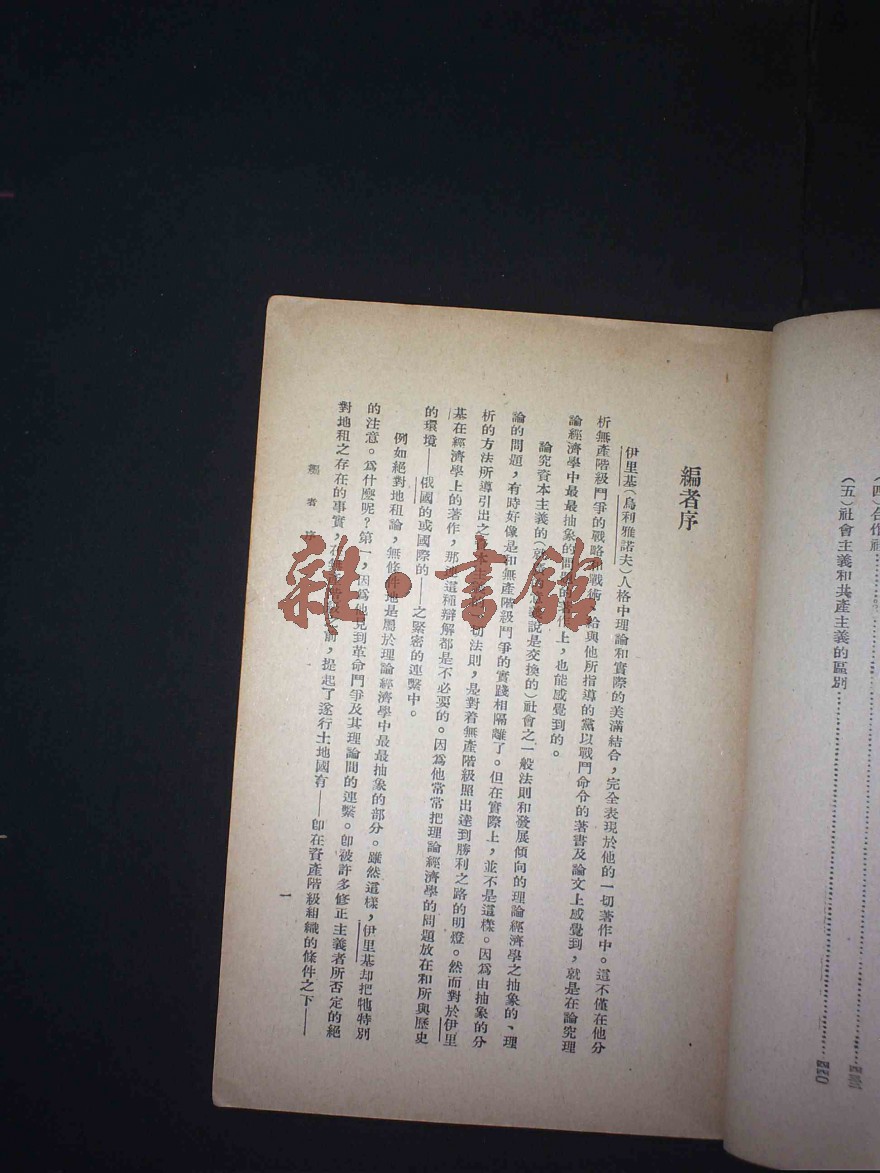 (四)合作社
(五)社會主義和共產主義的區別
編者序
伊里基(烏利雅諾夫)人格中理論和實際的美滿結合,完全表現於他的一切著作中。這不僅在他分
析無產階級鬥爭的戰略和戰術,給與他所指導的黨以戰鬥命令的著書及論文上感覺到,就是在論究理
論經濟學中最最抽象的問題的著作上,也能感覺到的。
論究資本主義的(說是交換的)社會之一般法則和發展傾向的理論經濟學之抽象的、理
論的問題,有時好像是和無產階級鬥爭的實踐相隔離了。但在實際上,並不是這樣。因爲由抽象的分
析的方法所導引出之本法則,是對着無產階級照出達到勝利之路的明燈。然而對於伊里
基在經濟學上的著作,那這種辯解都是不必要的。因爲他常常把理論經濟學的問題放在和所與歷史
的環境——俄國的或國際的——之緊密的連繫中。
例如絕對地租論,無條件地是屬於理論經濟學中最最抽象的部分。雖然這樣,伊里基却把牠特別
的注意。爲什麼呢?第一,因爲他見到革命鬥爭及其理論間的連繫。卽被許多修正主義者所否定的絕
對地租之存在的事實,在前,提起了遂行土地國有——卽在資產階級組織的條件之下——
編者序
一
雜·書館